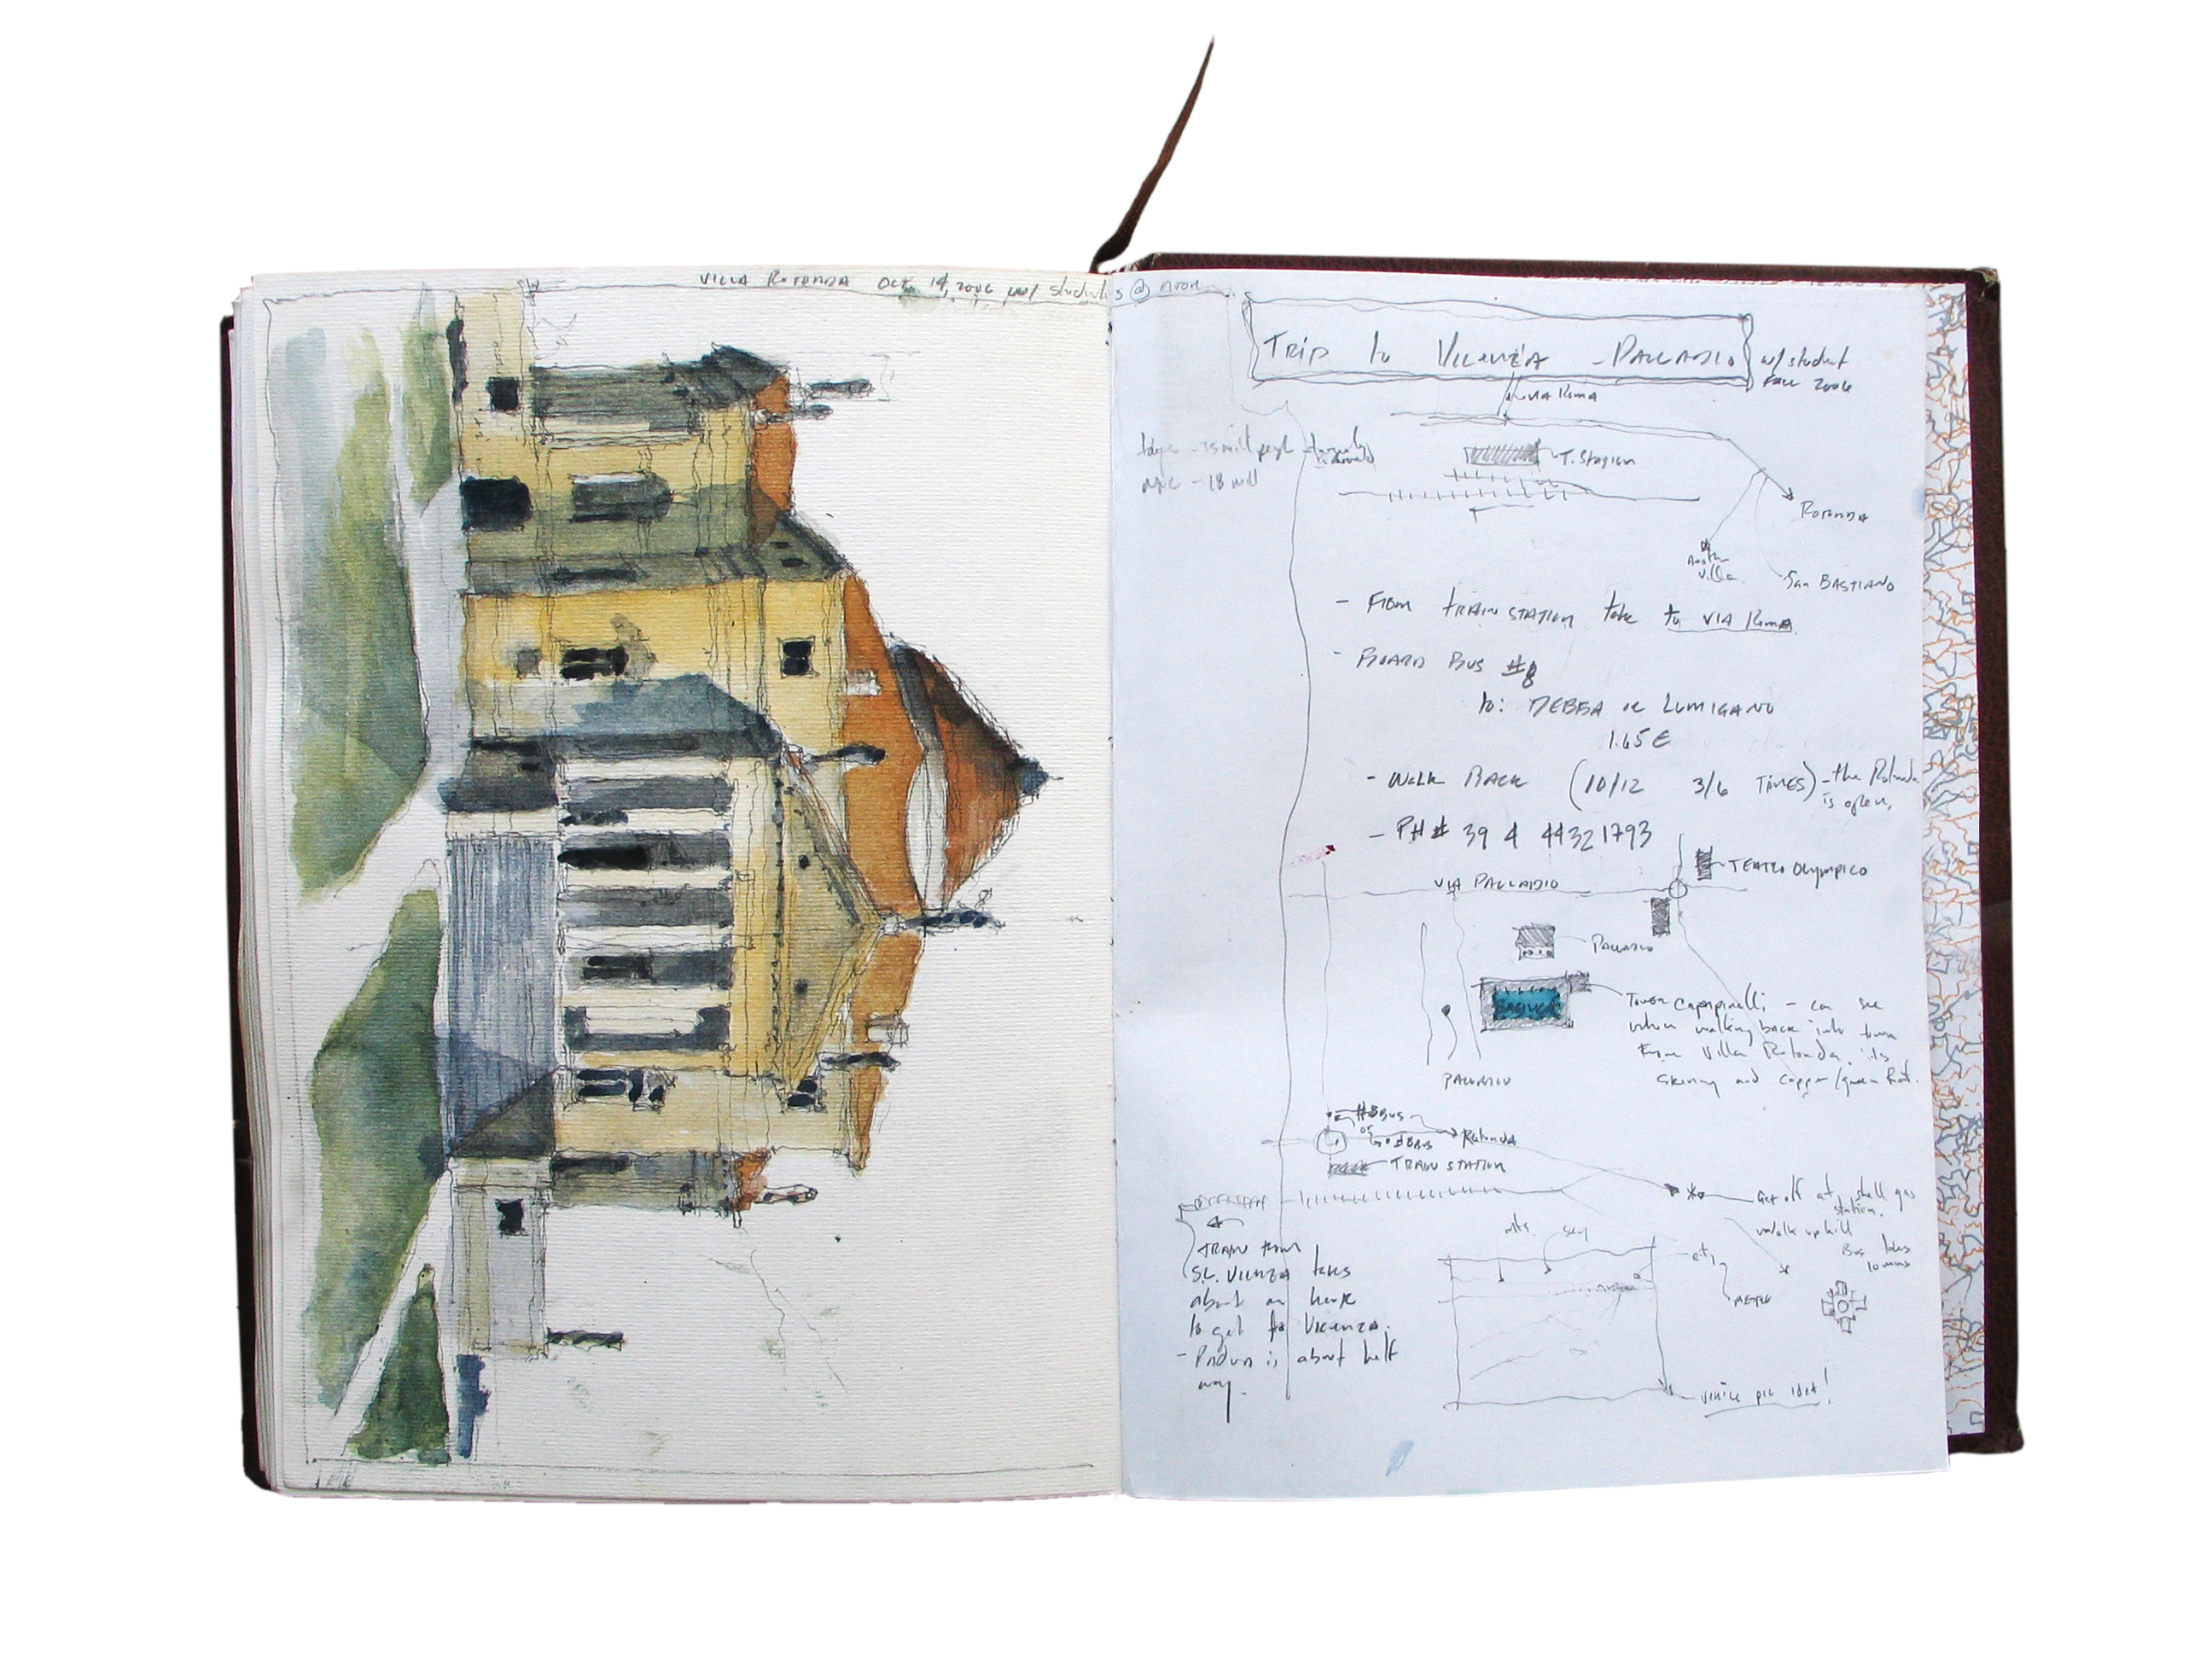 VILLA ROTONDA OCT 19, 2006 w/ students @ noon
TRIP to VICENZA - PALLADIO w/ student
FALL 2006
VIA Roma
T. STATION
ROTONDA
Another
villa
San BASTIANO
- FROM TRAIN STATION take to VIA Roma
- BOARD BUS #8
to: DEBBA or LUMIGANO
1.65 €
- WALK BACK (10/12 3/6 TIMES) - the Rotonda
is open,
- PH # 39 4 44321793
TEATRO OLYMPICO
VIA PALLADIO
PALLADIO
BASILICA
Tower - can see
when walking back into town
from Villa Rotonda. its
skinny and copper/green Roof.
PALLADIO
#8 BUS
or
BUS
Rotonda
TRAIN STATION
Get off at shell gas
station.
walk uphill
Bus takes
10 mins
mts. sky
city
TRAIN from
S.L. VICENZA takes
about an hour
to get to Vicenza.
- Padua is about half
way.
venice pic idea!